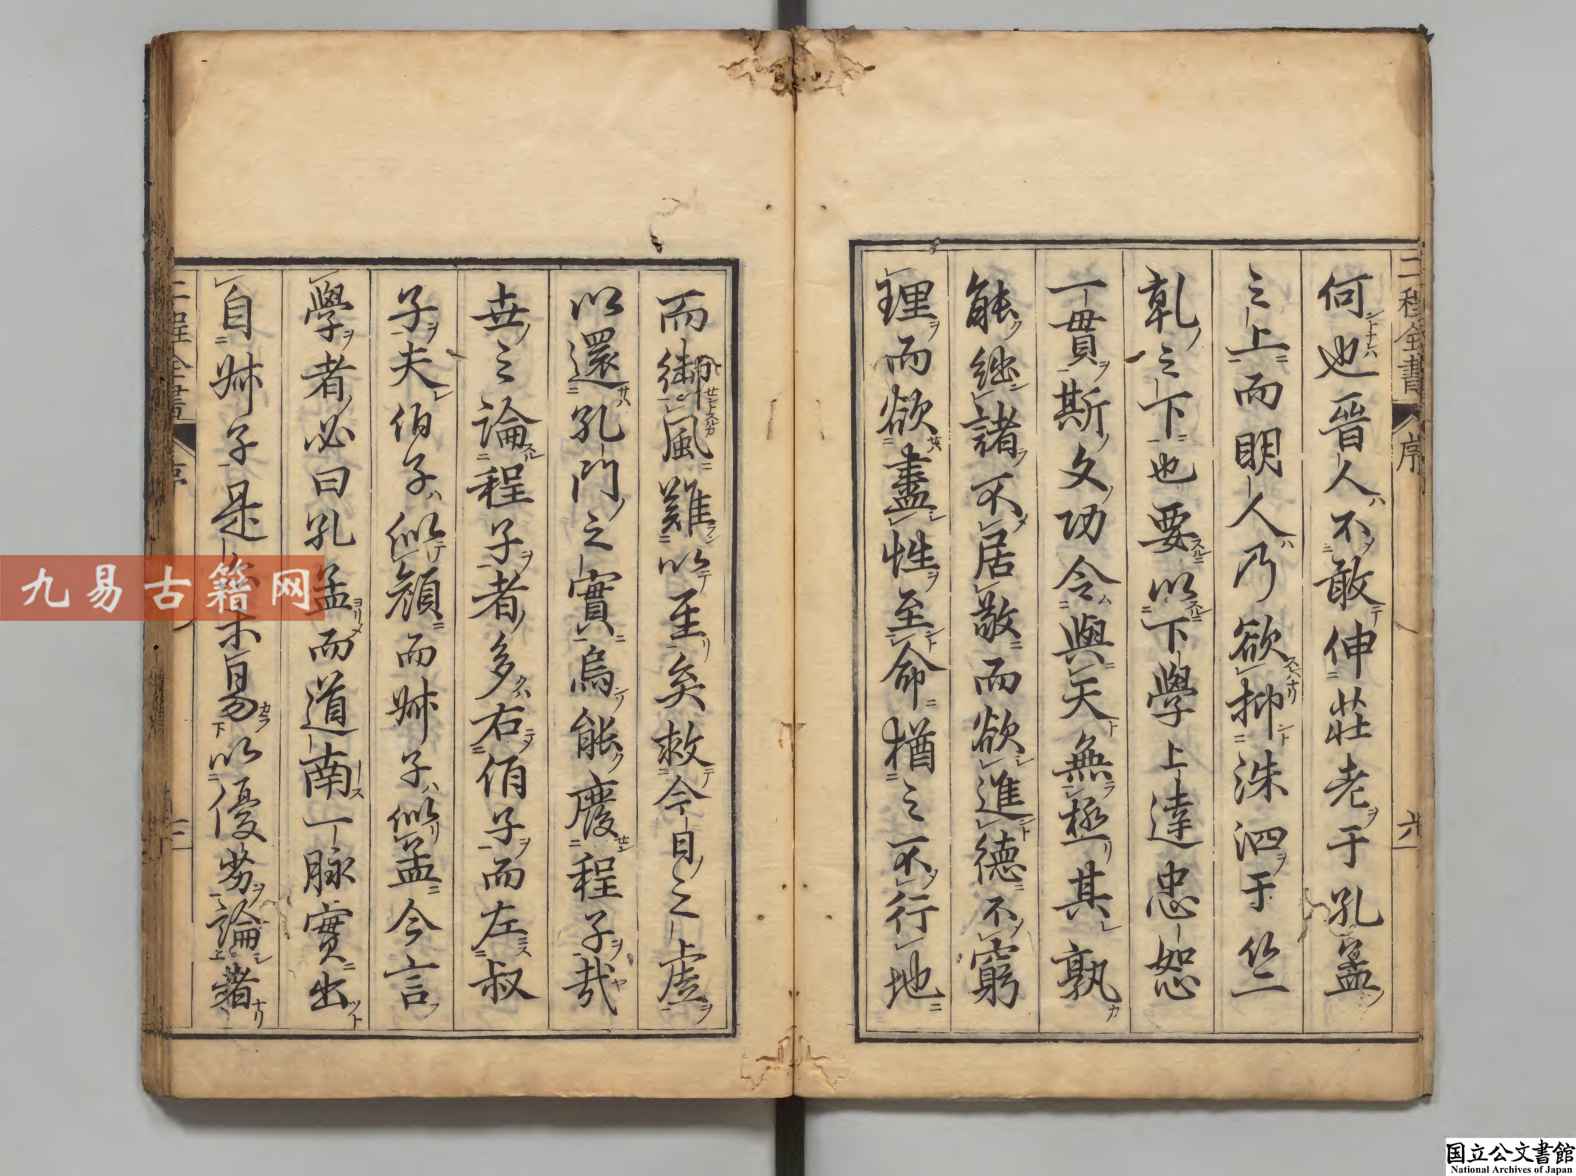 二程全書 序 六
何也晉人不敢伸莊老于孔孟
之上而明人乃欲抑洙泗于竺
乹之下也要以下學上達忠恕
一貫斯文功令與天無極其孰
能継諸不居敬而欲進德不窮
理而欲盡性至命猶之不行地
而御風難以至矣救今日之虛
以還孔門之實烏能廢程子哉
世之論程子者多右伯子而左叔
子夫伯子似顏而叔子似孟今言
學者必曰孔孟而道南一脉實出
自叔子是未易以優劣論者
二程全書 序
九易古籍网
国立公文書館
National Archives of Japan